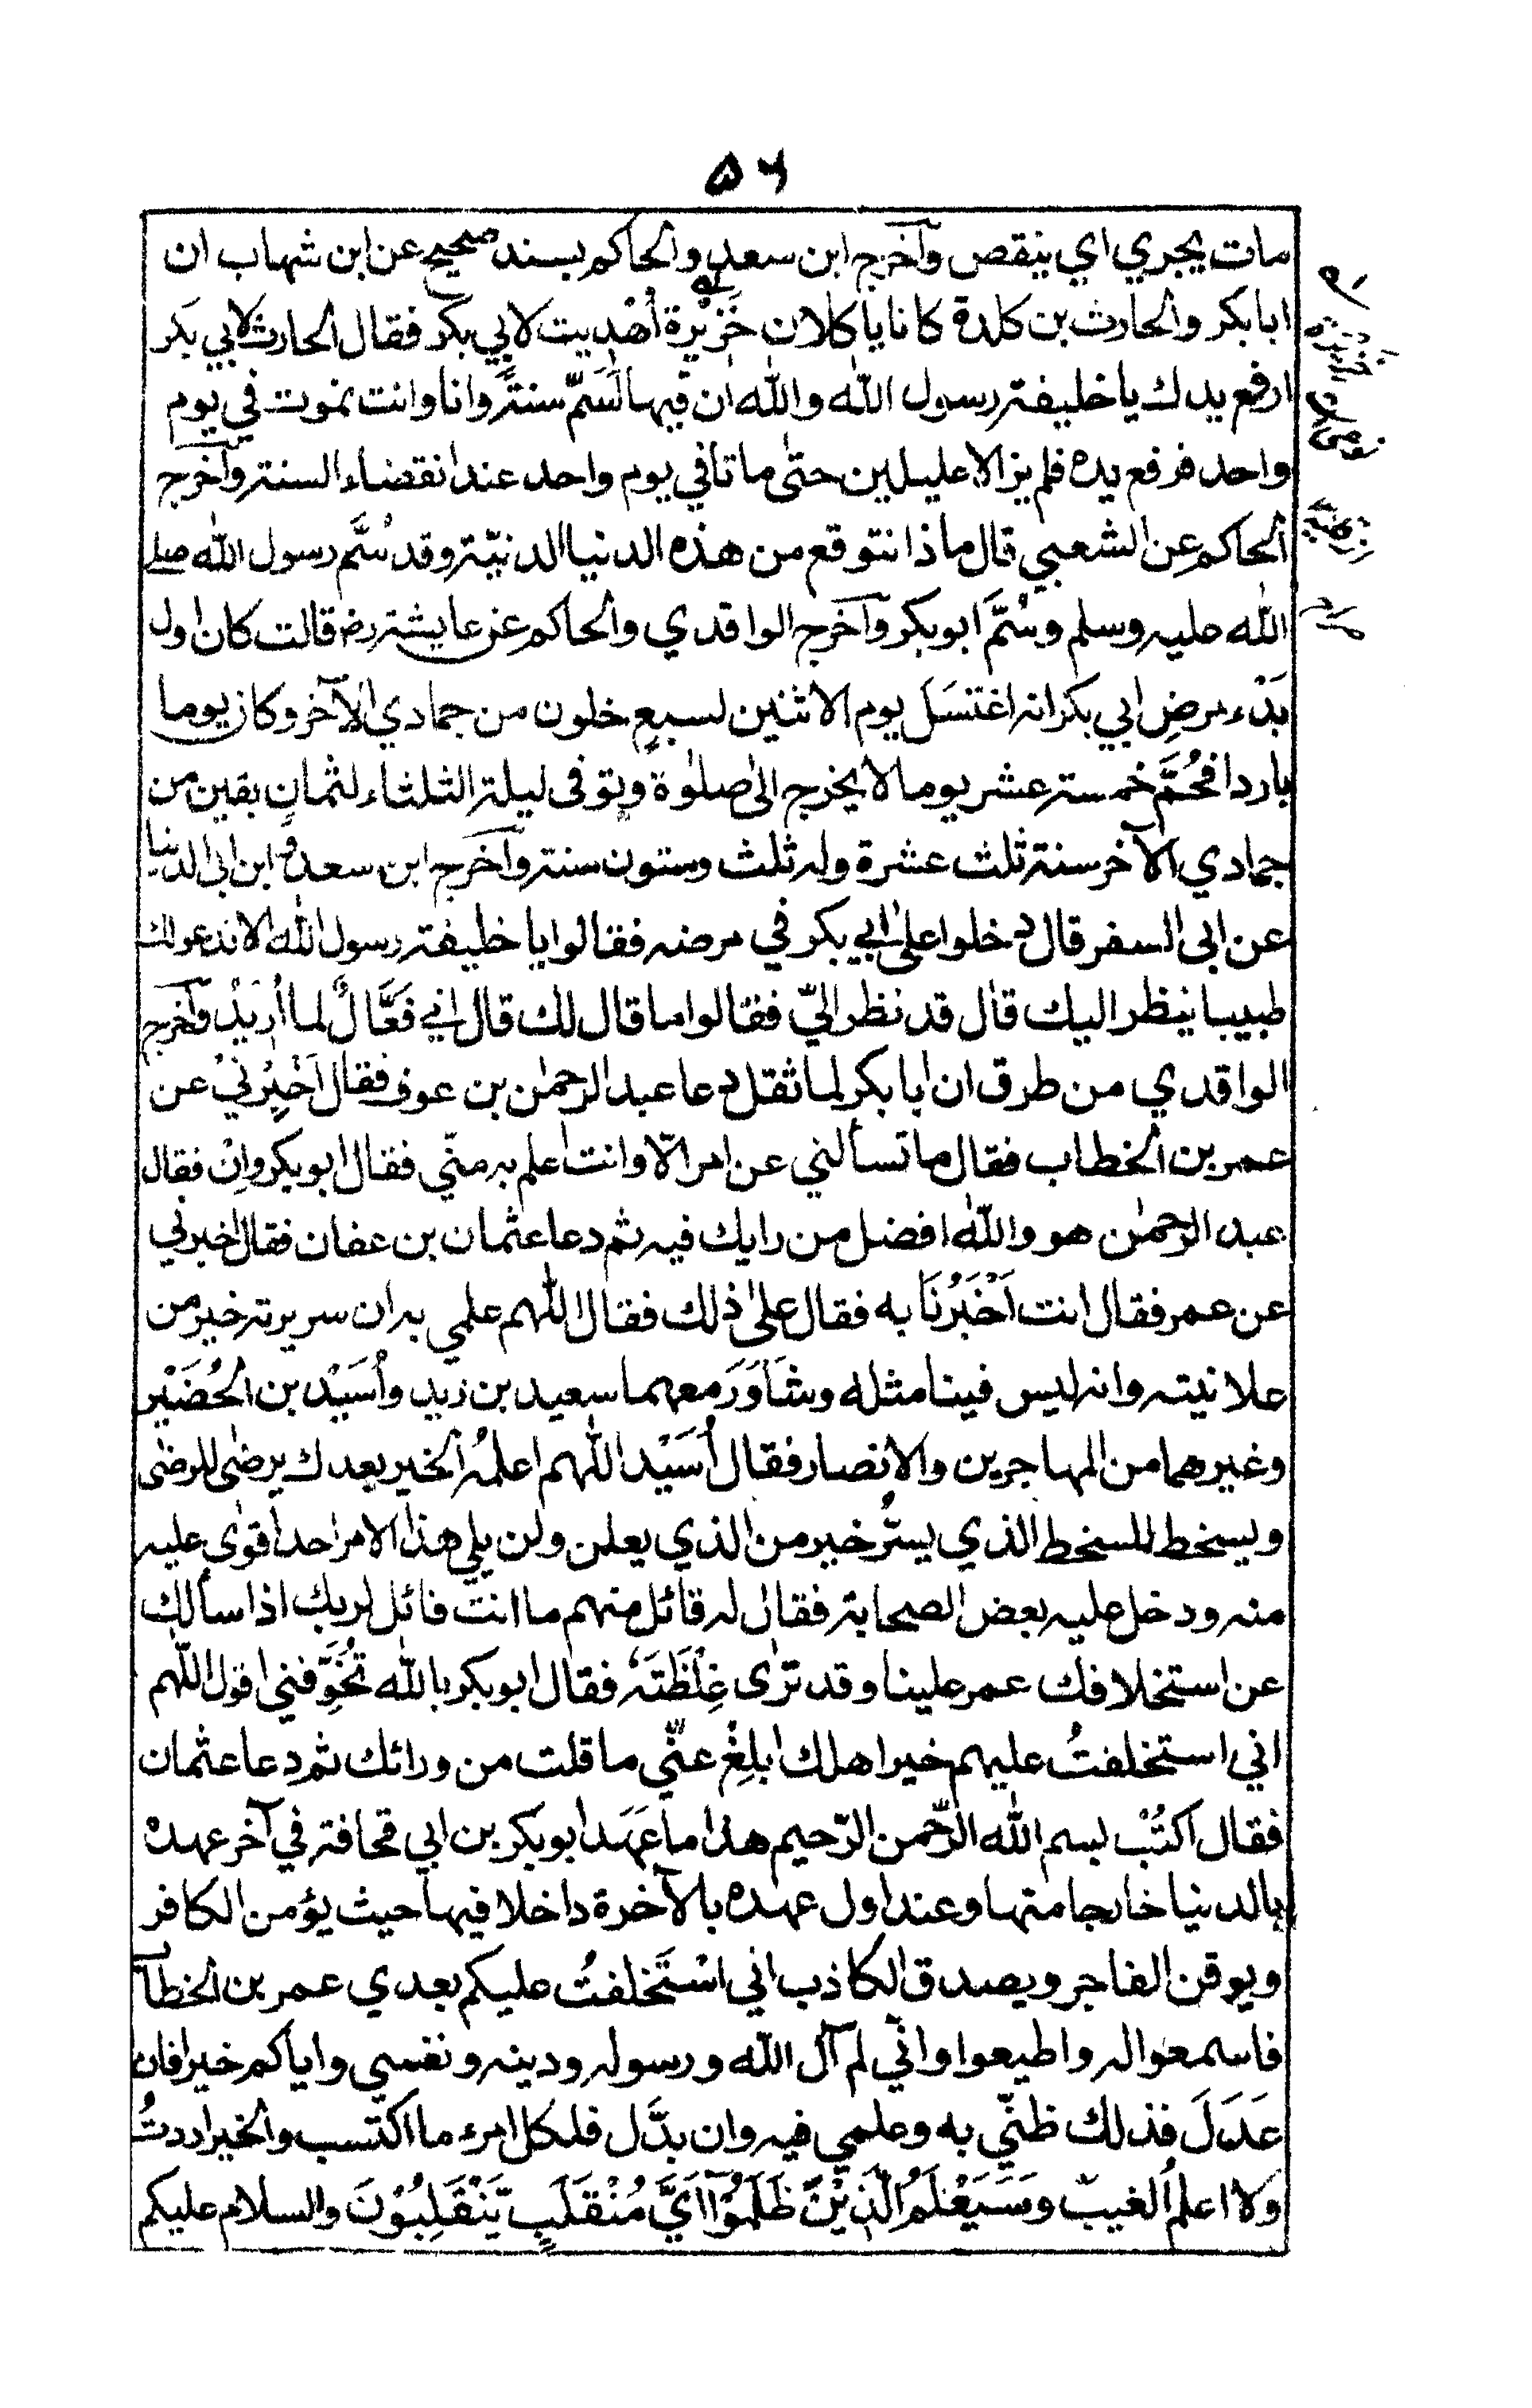 ۵۶
مات يجري اي ينقص وآخرج ابن سعد والحاكم بسند صحيح عن ابن شهاب ان
ابا بكر والحارث بن كلدة كانا ياكلان خَزِيْرة أُهْدِيت لابي بكر فقال الحارث لابي بكر
ارفع يدك يا خليفة رسول الله والله ان فيها لَسَمّ سنة وانا وانت نموت في يوم
واحد فرفع يده فلم يزالا عليلين حتى ماتا في يوم واحد عند انقضاء السنة وآخرج
الحاكم عن الشعبي قال ماذا نتوقع من هذه الدنيا الدنية وقد سُمَّ رسول الله صلى
الله عليه وسلم وسُمَّ ابو بكر وآخرج الواقدي والحاكم عن عايشة رض قالت كان اول
بَدْء مرضِ ابي بكر انه اغتسَلَ يوم الاثنين لسبعٍ خلون من جمادي الآخر وكان يوما
باردا فحُمَّ خمسة عشر يوما لا يخرج الى صلوة وتوفى ليلة الثلثاء لثمانٍ بقين من
جمادي الآخر سنة ثلث عشرة وله ثلث وستون سنة وآخرج ابن سعد و ابن ابي الدنيا
عن ابى السفر قال دخلوا على ابي بكر في مرضه فقالوا يا خليفة رسول الله الا ندعو لك
طبيبا ينظر اليك قال قد نظر اليّ فقالوا ما قال لك قال اني فَعَّالٌ لما اُرِيْدُ وآخرج
الواقدي من طرق ان ابا بكر لما ثقل دعا عبد الرحمن بن عوف فقال اَخْبِرْنيْ عن
عمر بن الخطاب فقال ما تسألني عن امر الّا وانت اعلم به منّي فقال ابو بكر وإنْ فقال
عبد الرحمن هو والله افضل من رايك فيه ثم دعا عثمان بن عفان فقال اخبرني
عن عمر فقال انت اَخْبَرُنَا به فقال على ذلك فقال اللهم علمي به ان سريرته خير من
علانيته وانه ليس فينا مثله وشَاوَرَ معهما سعيد بن زيد وأُسَيْد بن الحُضَيْر
وغيرهما من المهاجرين والانصار فقال أُسَيْد اللهم اعلمُه الخير بعدك يرضى للرضى
ويسخط للسخط الذي يسرُّ خير من الذي يعلن ولن يلي هذا الامر احد اقوى عليه
منه ودخل عليه بعض الصحابة فقال له قائل منهم ما انت قائل لربك اذا سألك
عن استخلافك عمر علينا وقد ترى غِلْظَتَهٗ فقال ابو بكر بالله تُخَوِّفني اقول اللّهم
اني استخلفتُ عليهم خير اهلك ابلِغْ عنّي ما قلت من ورائك ثم دعا عثمان
فقال اكتُبْ بسم الله الرّحمن الرّحيم هذا ما عَهَد ابو بكر بن ابي قحافة في آخر عهده
بالدنيا خارجا منها وعند اول عهده بالآخرة داخلا فيها حيث يؤمن الكافر
ويوقن الفاجر ويصدق الكاذب اني اسْتَخلفتُ عليكم بعدي عمر بن الخطاب
فاسمعوا له واطيعوا وانّي لم آل الله ورسوله ودينه ونفسي واياكم خيرا فان
عَدَلَ فذلك ظنّي به وعلمي فيه وان بدَّل فلكل امرء ما اكتسب والخير اردتُ
وَلا اعلمُ الغيبّ وَسَيَعْلَمُ الَّذِيْنَ ظَلَمُوْٓا اَيَّ مُنْقَلَبٍ يَّنْقَلِبُوْنَ والسلام عليكم